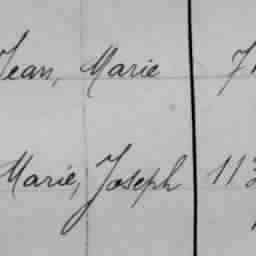 Jean, Marie
Marie, Joseph 113